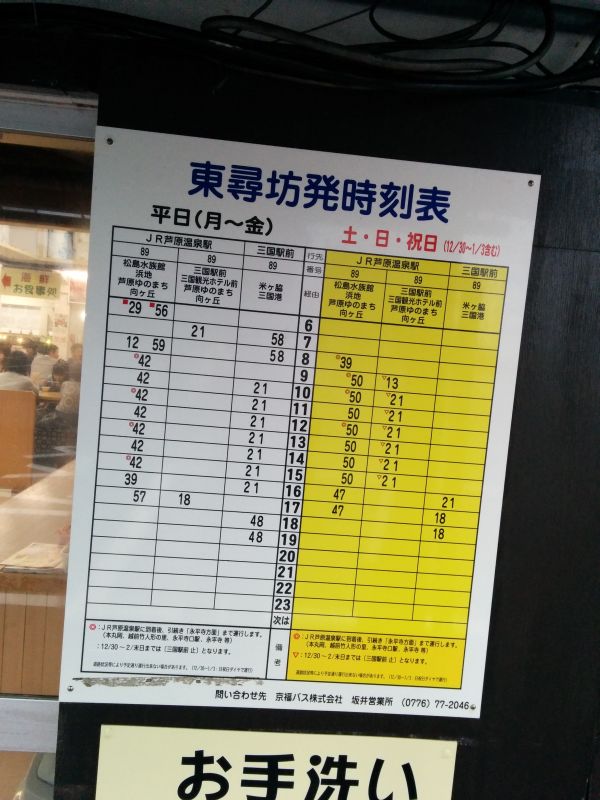 東尋坊発時刻表
平日(月～金)
土・日・祝日 (12/30～1/3含む)
JR芦原温泉駅 三国駅前 行先 JR芦原温泉駅 三国駅前
89 89 89 番号 89 89 89
松島水族館 浜地 芦原ゆのまち 向ヶ丘 三国駅前 三国観光ホテル前 芦原ゆのまち 向ヶ丘 米ヶ脇 三国港 経由 松島水族館 浜地 芦原ゆのまち 向ヶ丘 三国駅前 三国観光ホテル前 芦原ゆのまち 向ヶ丘 米ヶ脇 三国港
■29 ■56 6
21 58 7
12 59 58 8 ◎39
◎42 9 ◎50 ▽13
42 21 10 ◎50 ▽21
◎42 21 11 50 ▽21
42 21 12 ◎50 ▽21
◎42 21 13 50 ▽21
42 21 14 50 ▽21
◎42 21 15 50 ▽21
39 21 16 47 21
57 18 17 47 18
48 18 18
48 19
20
21
22
23
次は
◎：JR芦原温泉駅に到着後、引続き「永平寺方面」まで運行します。
(本丸岡、越前竹人形の里、永平寺口駅、永平寺 等)
▽：12/30～2/末日までは(三国駅前 止)となります。
道路状況等により予定通り運行出来ない場合があります。(12/30～1/3 日祝日ダイヤで運行)
備考
◎：JR芦原温泉駅に到着後、引続き「永平寺方面」まで運行します。
(本丸岡、越前竹人形の里、永平寺口駅、永平寺 等)
▽：12/30～2/末日までは(三国駅前 止)となります。
道路状況等により予定通り運行出来ない場合があります。(12/30～1/3 日祝日ダイヤで運行)
問い合わせ先 京福バス株式会社 坂井営業所 (0776) 77-2046
お手洗い
海鮮
お食事処